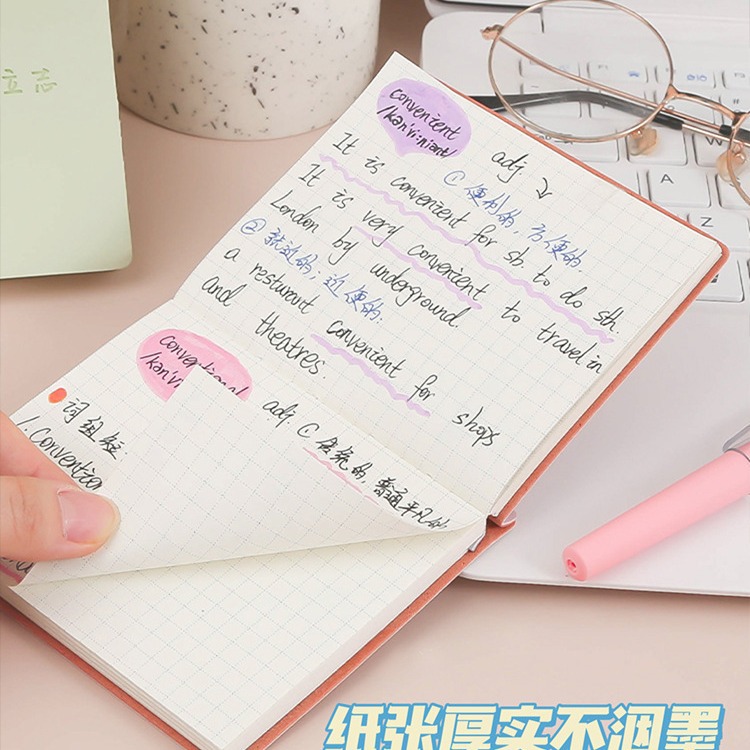 立志
convenient
/kən'vi:niənt/
adj.
① 便利的, 方便的.
It is convenient for sb. to do sth.
It is very convenient to travel in
London by underground.
② 就近的; 近便的.
a resturant convenient for shops
and theatres
conventional
/kən'v
adj. ① 传统的, 普通平凡的
词组短
1. Convenien
纸张厚实不洇墨